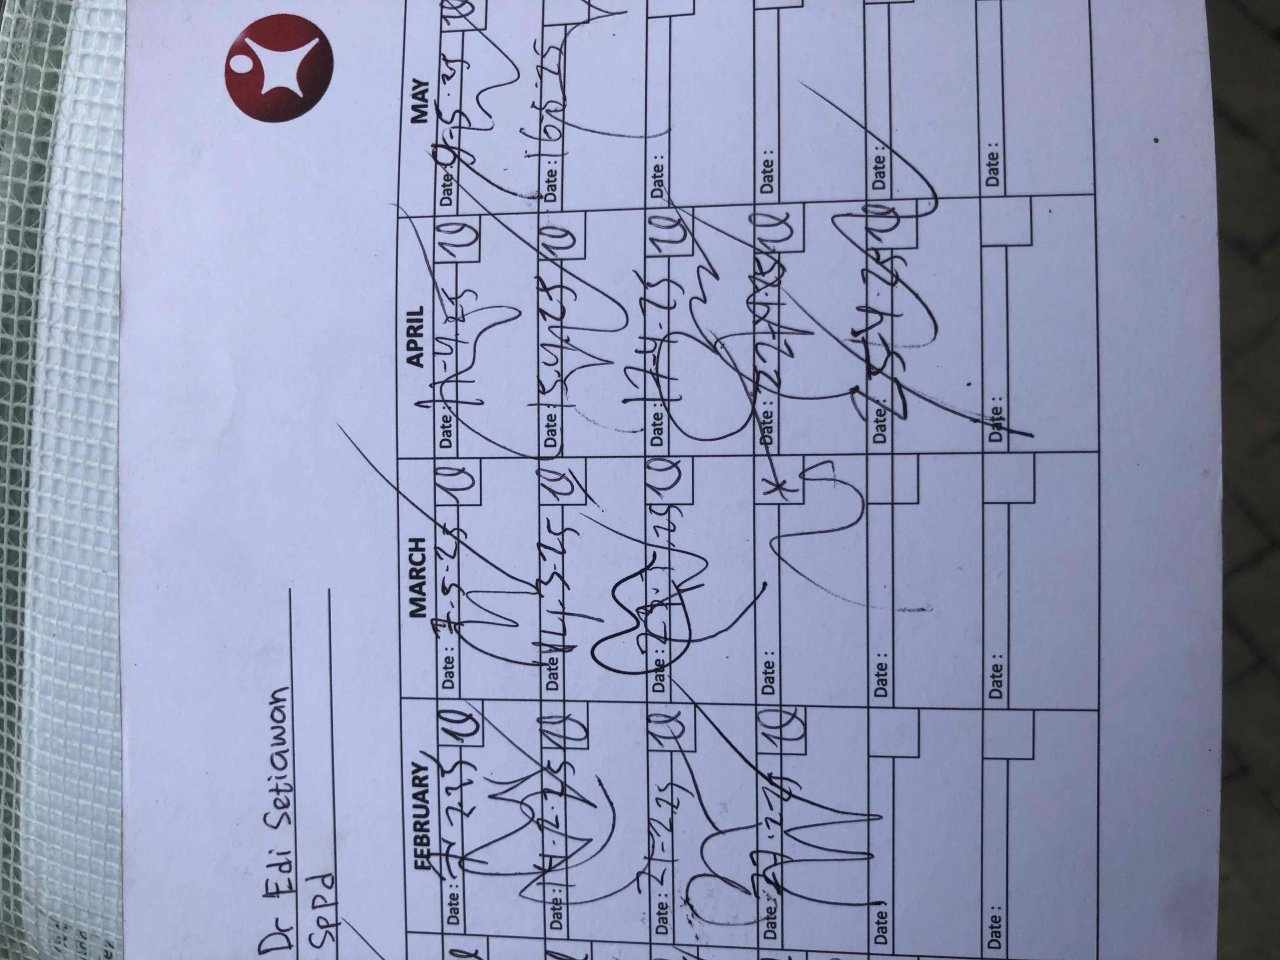 Dr Edi Setiawan
SpPd
FEBRUARY MARCH APRIL MAY
Date : 7 2 25 10 Date : 7-3-25 10 Date : 11-4.25 10 Date : 9-5.25 10
Date : 14.2.25 10 Date : 14.3-25 10 Date : 15.4.25 10 Date : 16.5.25
Date : 21-2.25 10 Date : 10 Date : 17-4-25 10 Date :
Date : 27.2-25 10 Date : Date : 22-4.25 10 Date :
Date : Date : Date : 25.4.25 10 Date :
Date : Date : Date : Date :